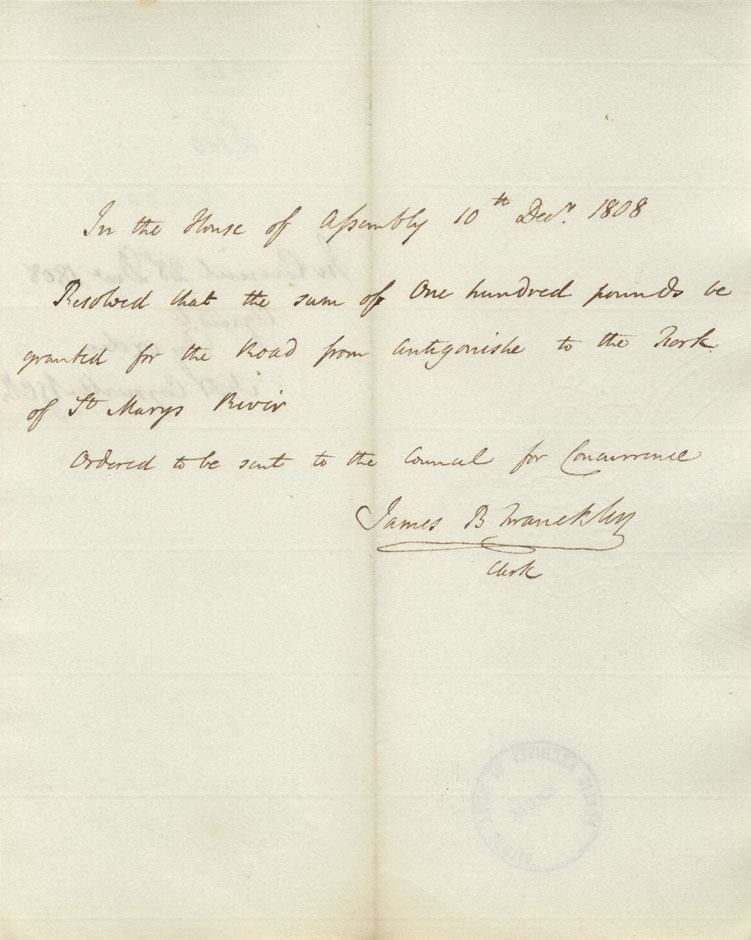 In the House of Assembly 10th Decr. 1808
Resolved that the sum of One hundred pounds be
granted for the Road from Antigonishe to the Fork
of St Marys River
Ordered to be sent to the Council for Concurrence
James B Franckley
Clerk